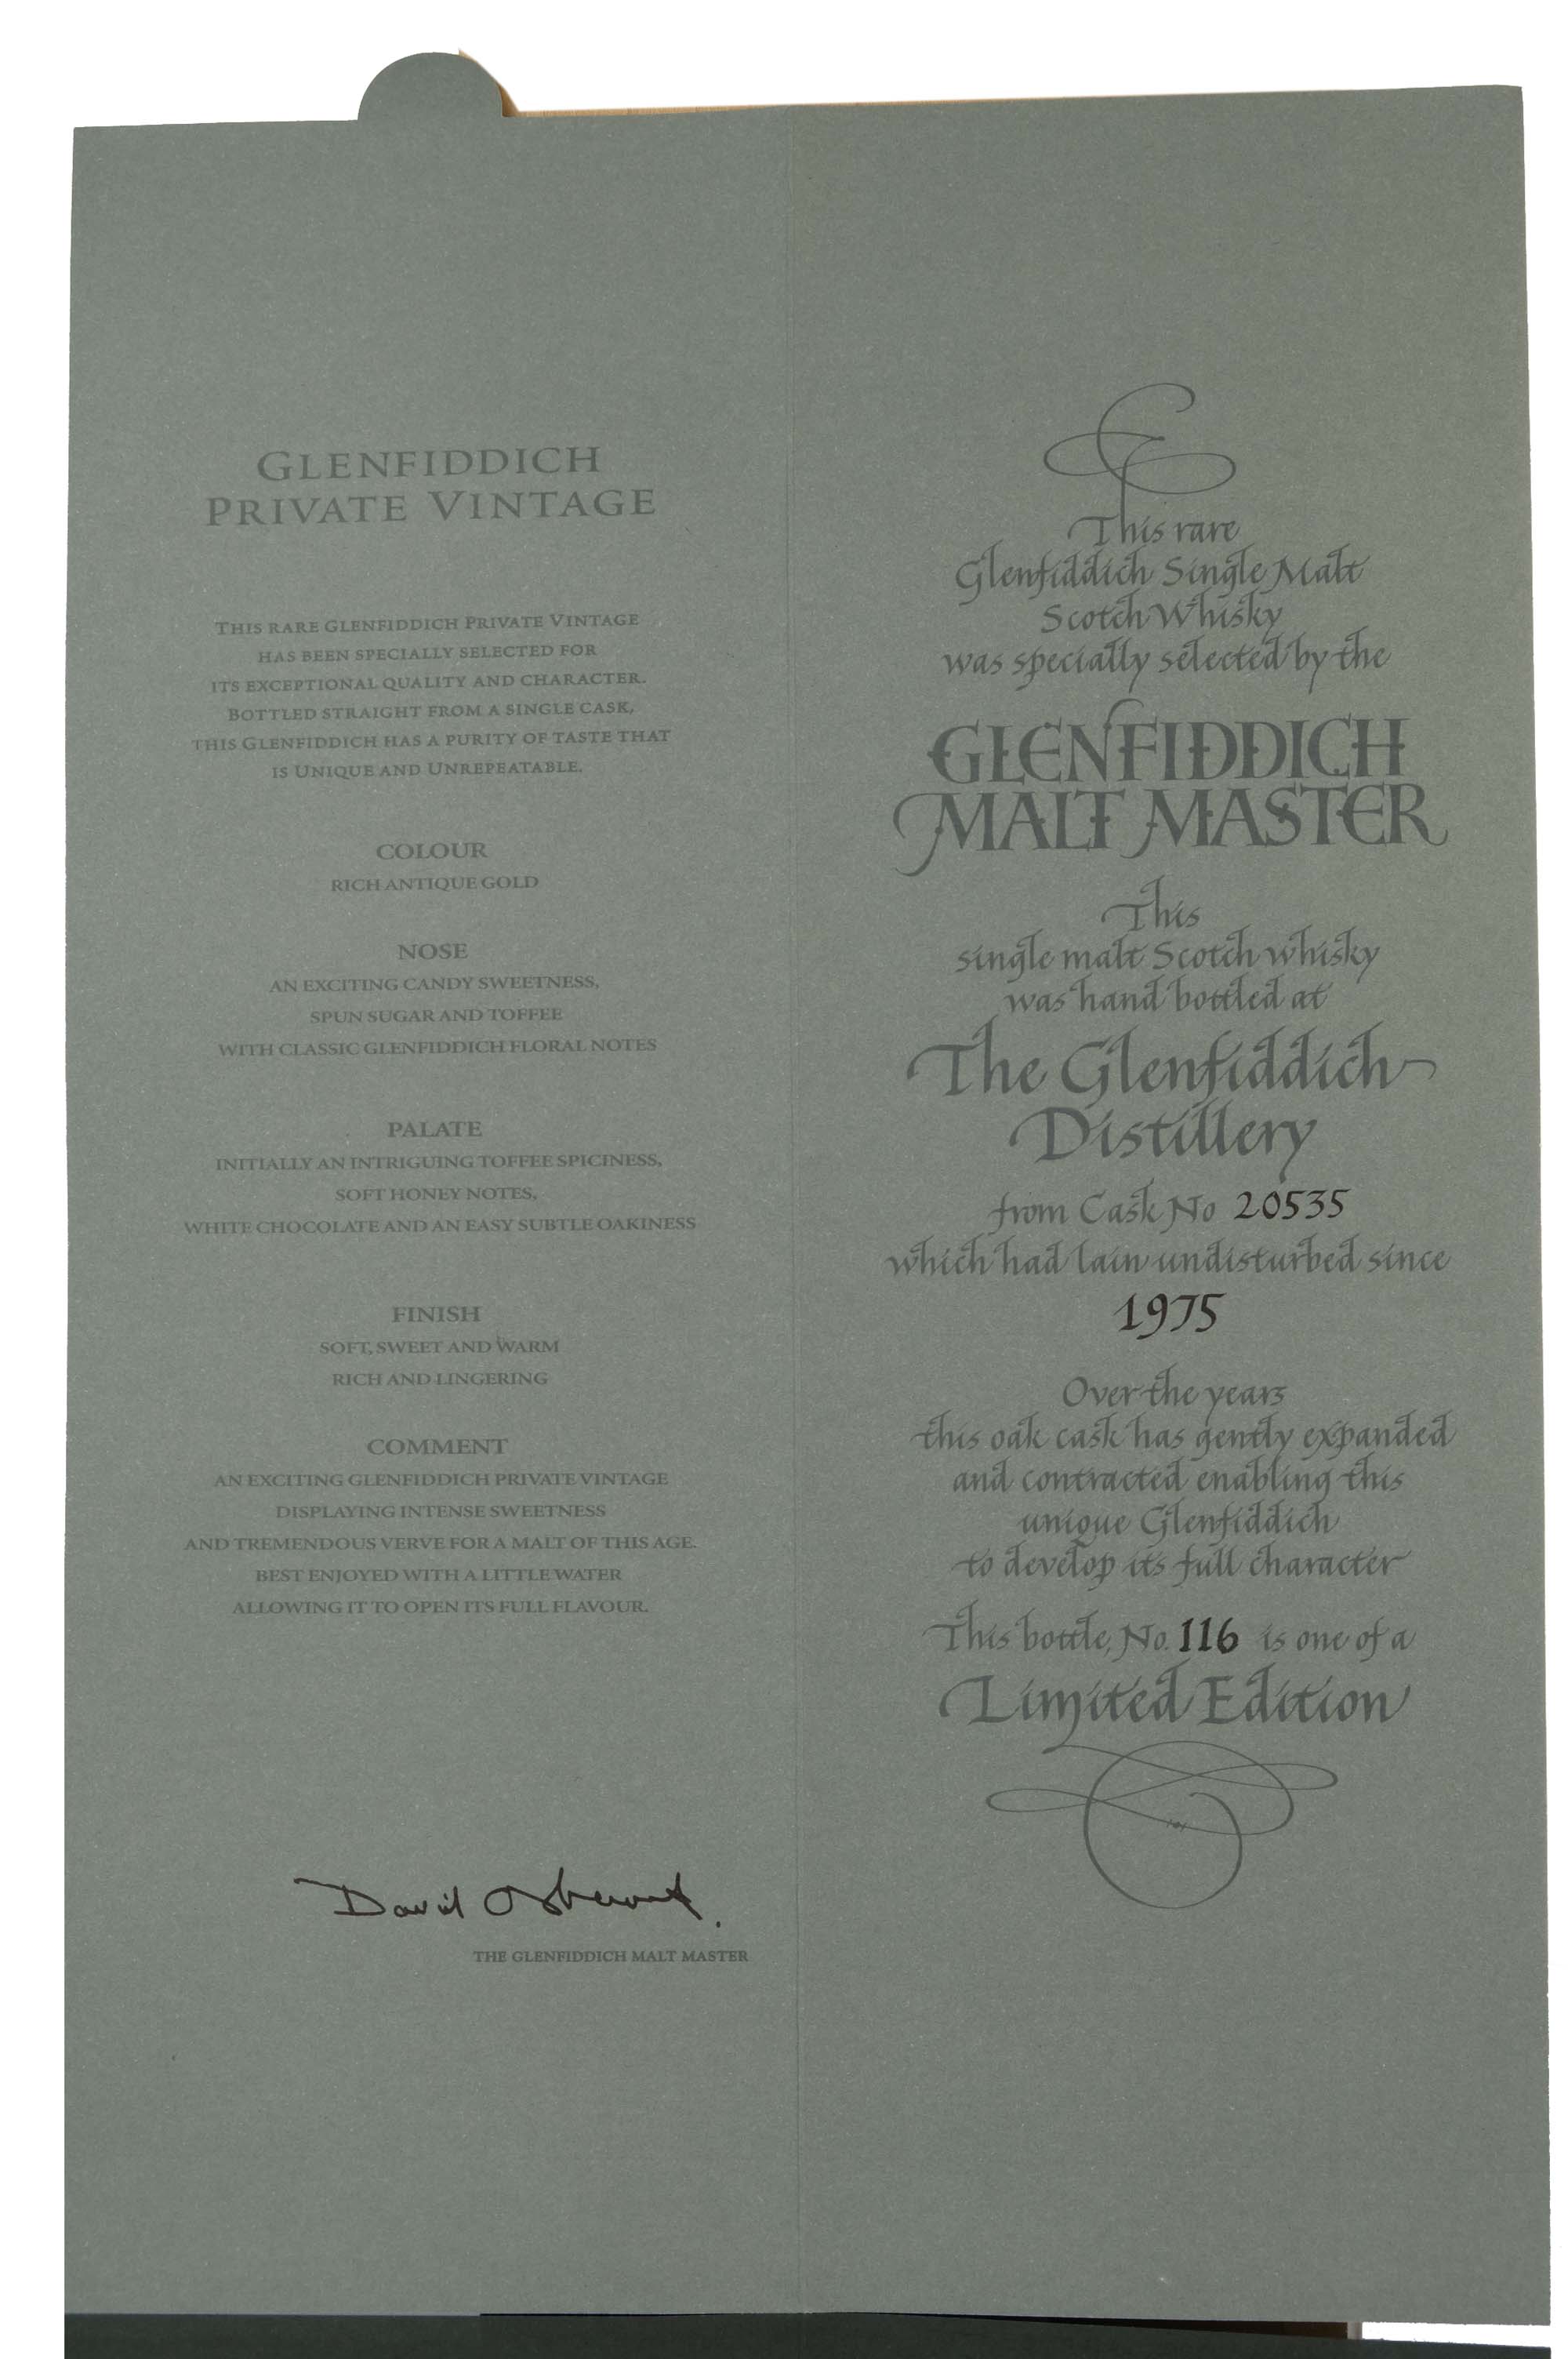 GLENFIDDICH
PRIVATE VINTAGE
THIS RARE GLENFIDDICH PRIVATE VINTAGE
HAS BEEN SPECIALLY SELECTED FOR
ITS EXCEPTIONAL QUALITY AND CHARACTER.
BOTTLED STRAIGHT FROM A SINGLE CASK,
THIS GLENFIDDICH HAS A PURITY OF TASTE THAT
IS UNIQUE AND UNREPEATABLE.
COLOUR
RICH ANTIQUE GOLD
NOSE
AN EXCITING CANDY SWEETNESS,
SPUN SUGAR AND TOFFEE
WITH CLASSIC GLENFIDDICH FLORAL NOTES
PALATE
INITIALLY AN INTRIGUING TOFFEE SPICINESS,
SOFT HONEY NOTES,
WHITE CHOCOLATE AND AN EASY SUBTLE OAKINESS
FINISH
SOFT, SWEET AND WARM
RICH AND LINGERING
COMMENT
AN EXCITING GLENFIDDICH PRIVATE VINTAGE
DISPLAYING INTENSE SWEETNESS
AND TREMENDOUS VERVE FOR A MALT OF THIS AGE.
BEST ENJOYED WITH A LITTLE WATER
ALLOWING IT TO OPEN ITS FULL FLAVOUR.
David
THE GLENFIDDICH MALT MASTER
This rare
Glenfiddich Single Malt
Scotch Whisky
was specially selected by the
GLENFIDDICH
MALT MASTER
This
single malt Scotch whisky
was hand bottled at
The Glenfiddich
Distillery
from Cask No 20535
which had lain undisturbed since
1975
Over the years
this oak cask has gently expanded
and contracted enabling this
unique Glenfiddich
to develop its full character
This bottle, No. 116 is one of a
Limited Edition